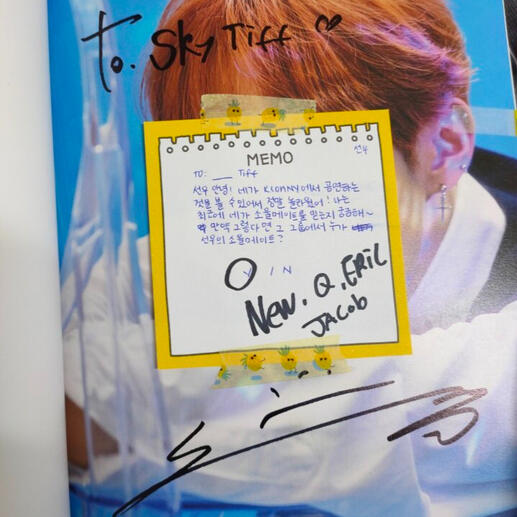 To. Sky Tiff ♡
MEMO
선우
TO: ___ Tiff
선우 안녕! 네가 KCONNY에서 공연하는
것을 볼 수 있어서 정말 놀라웠어! 나는
최근에 네가 소울메이트를 믿는지 궁금해~
만약 그렇다면 그 그룹에서 누가
선우의 소울메이트?
Y / N
New, Q, ERIC
JACOB